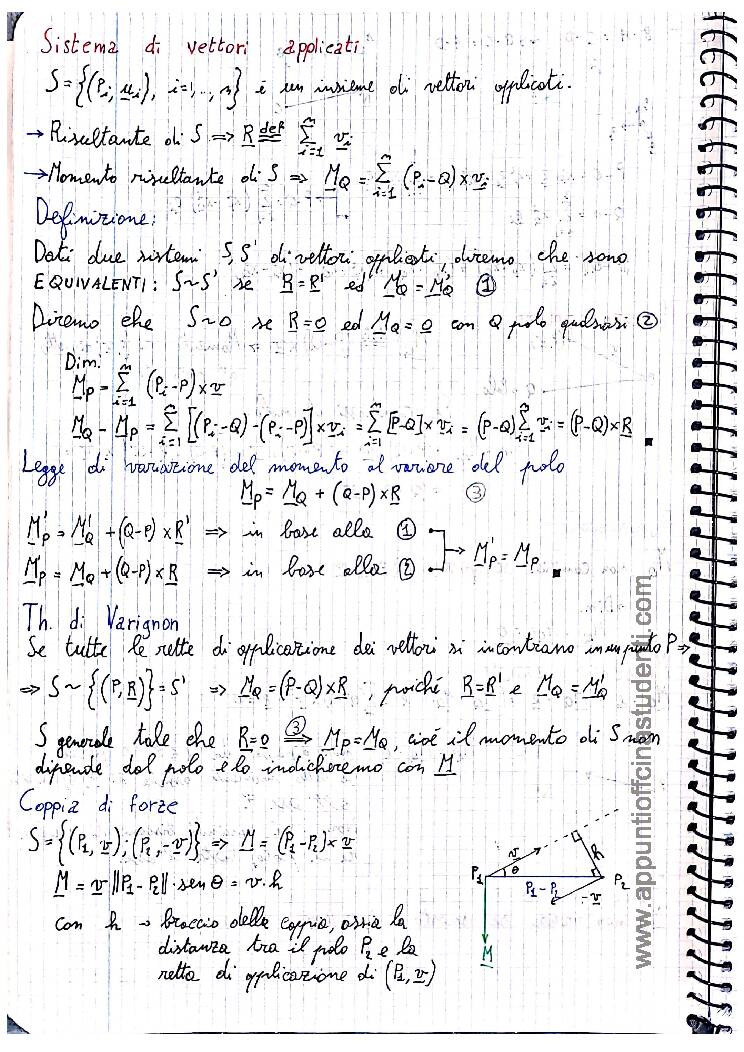 Sistema di vettori applicati
S = {(Pi, ui), i=1,..,n} è un insieme di vettori applicati.
→ Risultante di S ⇒ R def= Σ_{i=1}^{n} vi
→ Momento risultante di S ⇒ M_Q = Σ_{i=1}^{n} (Pi-Q) × vi
Definizione:
Dati due sistemi S, S' di vettori applicati, diremo che sono
EQUIVALENTI: S~S' se R=R' ed M_Q = M'_Q ①
Diremo che S~0 se R=0 ed M_Q=0 con Q polo qualsiasi ②
Dim.
M_P = Σ_{i=1}^{n} (Pi-P) × v
M_Q - M_P = Σ_{i=1}^{n} [(Pi-Q)-(Pi-P)] × vi = Σ_{i=1}^{n} [P-Q] × vi = (P-Q) Σ_{i=1}^{n} vi = (P-Q) × R ■
Legge di variazione del momento al variare del polo
M_P = M_Q + (Q-P) × R ③
M'_P = M'_Q + (Q-P) × R' ⇒ in base alla ①
M_P = M_Q + (Q-P) × R ⇒ in base alla ② → M'_P = M_P ■
Th. di Varignon
Se tutte le rette di applicazione dei vettori si incontrano in un punto P ⇒
⇒ S ~ {(P, R)} = S' ⇒ M_Q = (P-Q) × R, poiché R=R' e M_Q = M'_Q
S generale tale che R=0 ③⇒ M_P = M_Q, cioè il momento di S non
dipende dal polo e lo indicheremo con M
Coppia di forze
S = {(P1, v); (P2, -v)} ⇒ M = (P1-P2) × v
M = v ||P1-P2|| · sen θ = v · h
con h → braccio della coppia, ossia la
distanza tra il polo P2 e la
retta di applicazione di (P1, v)
v
h
P1
θ
P1 - P2
P2
-v
M
www.appuntioffcinastudenti.com